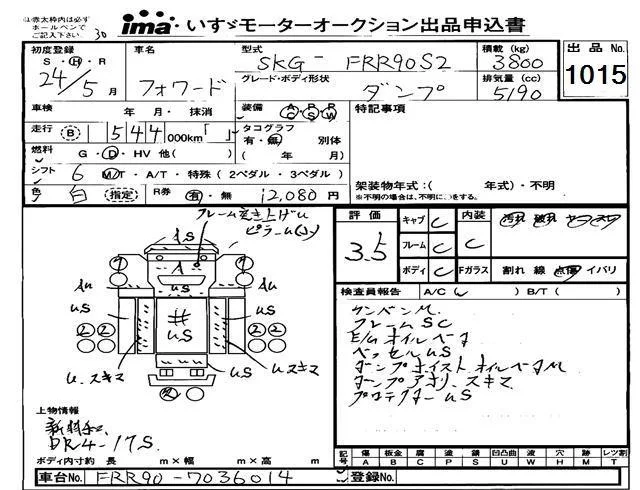 ※赤太枠内は必ず
ボールペンで
ご記入下さい
30
ima いすゞモーターオークション出品申込書
初度登録
S・H・R
24/5月
車名
フォワード
型式
SKG-FRR90S2
グレード・ボディ形状
ダンプ
積載(kg)
3800
排気量(cc)
5190
出品No.
1015
車検 年・月・抹消
装備 AC PS RW
特記事項
走行 B 1544 000km「 」
タコグラフ
有・無 別体
( 年 月)
燃料 G・D・HV 他( )
シフト 6 M/T・A/T・特殊(2ペダル・3ペダル)
色 白 (指定) R券 有・無 12,080円
架装物年式:( 年式)・不明
※不明の場合は、不明に○をする。
フレーム突き上げU
ピラーム(小)
AS
A
Au
Au
US
US
#
US
US
2 2
2 2
U.スキマ
U.スキマ
評価
3.5
キャブ C
フレーム C
ボディ C
内装 C
汚れ 破れ ヤニ スス
Fガラス 割れ 線 点傷 イバリ
検査員報告 A/C( )B/T( )
サンバンM.
フレームSC
E/Gオイルベタ
ベッセルUS
ダンプホイストオイルベタM
ダンプアオリ.スキマ
プロテクターUS
上物情報
新明和
DR4-17S.
ボディ内寸約 長 m×幅 m×高 m
記号 傷 板金 腐 塗 錆 凹 凸曲 波 穴 跡 レツ割
A B C P S U W H M T
車台No. FRR90-7036014
登録No.